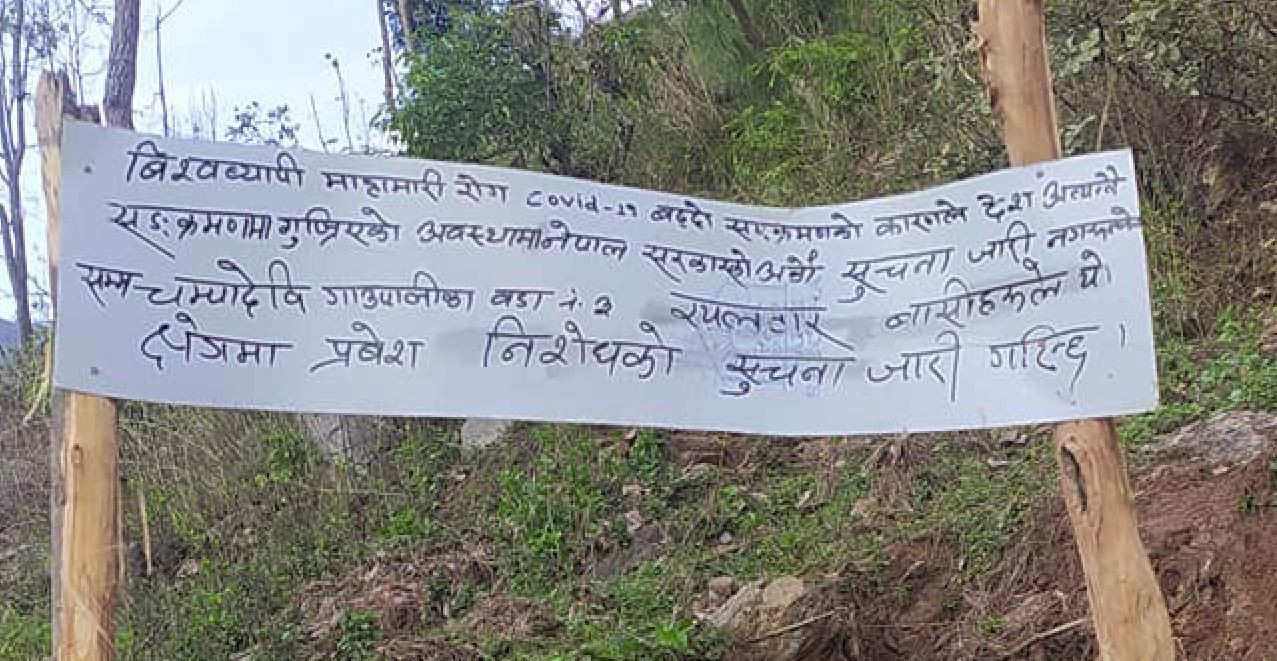 बिश्वव्यापी माहामारी रोग Covid-19 बढ्दो सङ्क्रमणको कारणले देश अत्यान्तै
सङ्क्रमणमा गुज्रिएको अवस्थामा नेपाल सरकारको अर्को सुचना जारी नगरुन्जेल
सम्म चम्पादेवि गाउपालीका वडा नं. ३ रपल्टार बासीहरूले यो
क्षेत्रमा प्रबेश निशेधको सुचना जारी गरिन्छ ।